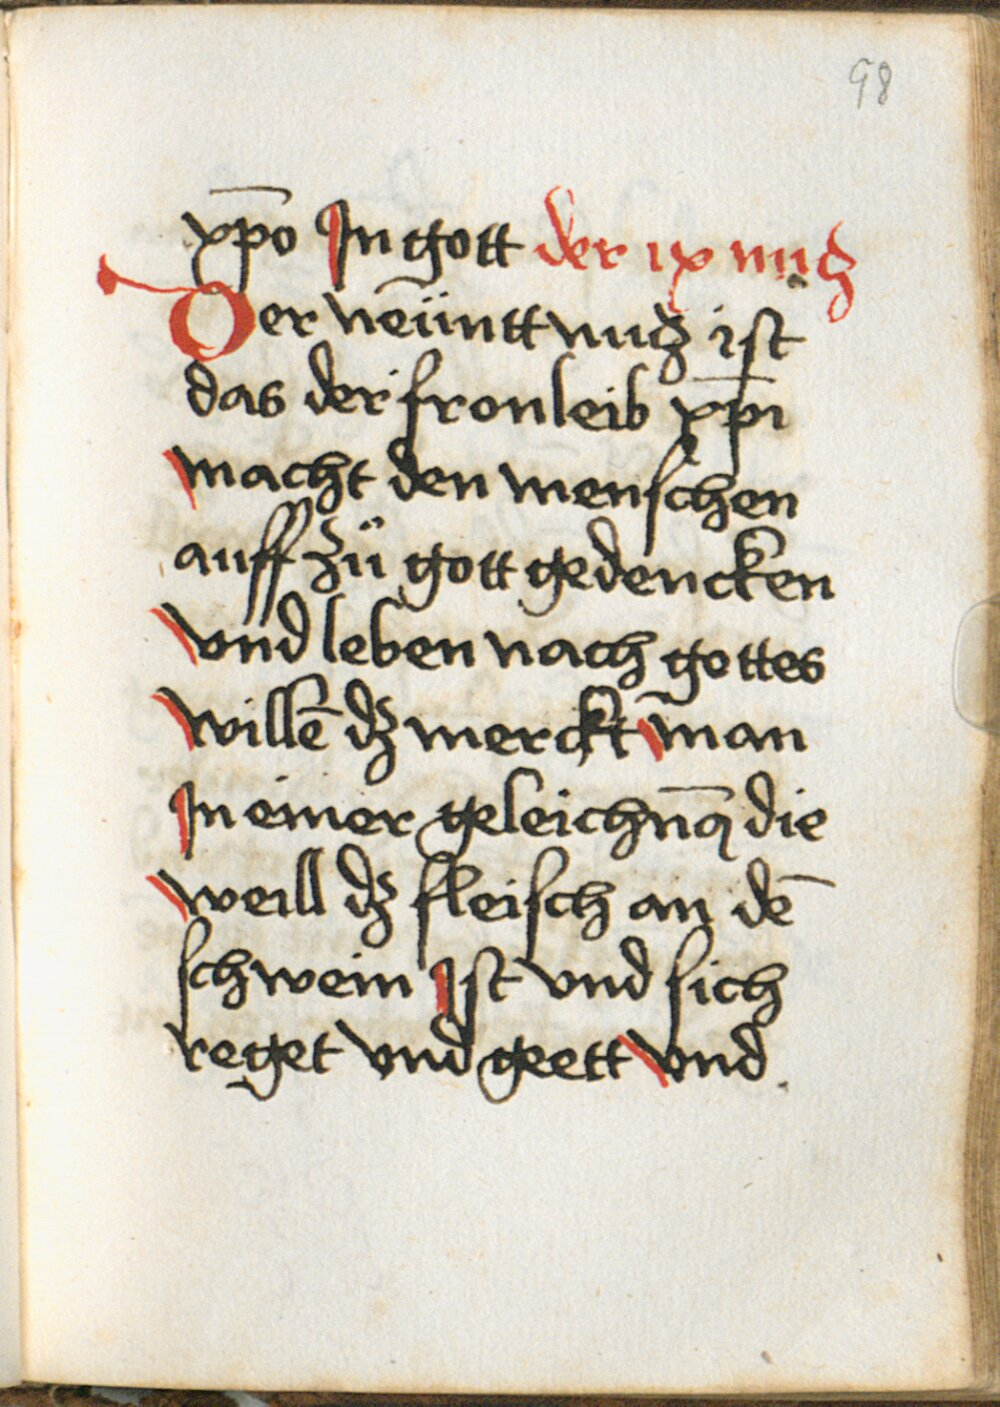 98
xp̄o In gott der ix nucz
Der nēüntt nucz ist
das der fronleib xp̄i
macht den menschen
auff zü gott gedencken
vnd leben nach gottes
willē dz merckt man
In einer geleichnꝰg die
weill dz fleisch an dē
schwein Ist vnd sich
reget vnd geett vnd